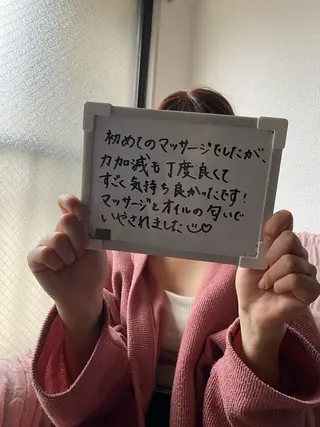 初めてのマッサージでしたが、
力加減も丁度良くて
すごく気持ち良かったです!
マッサージとオイルの匂いで
いやされました♡